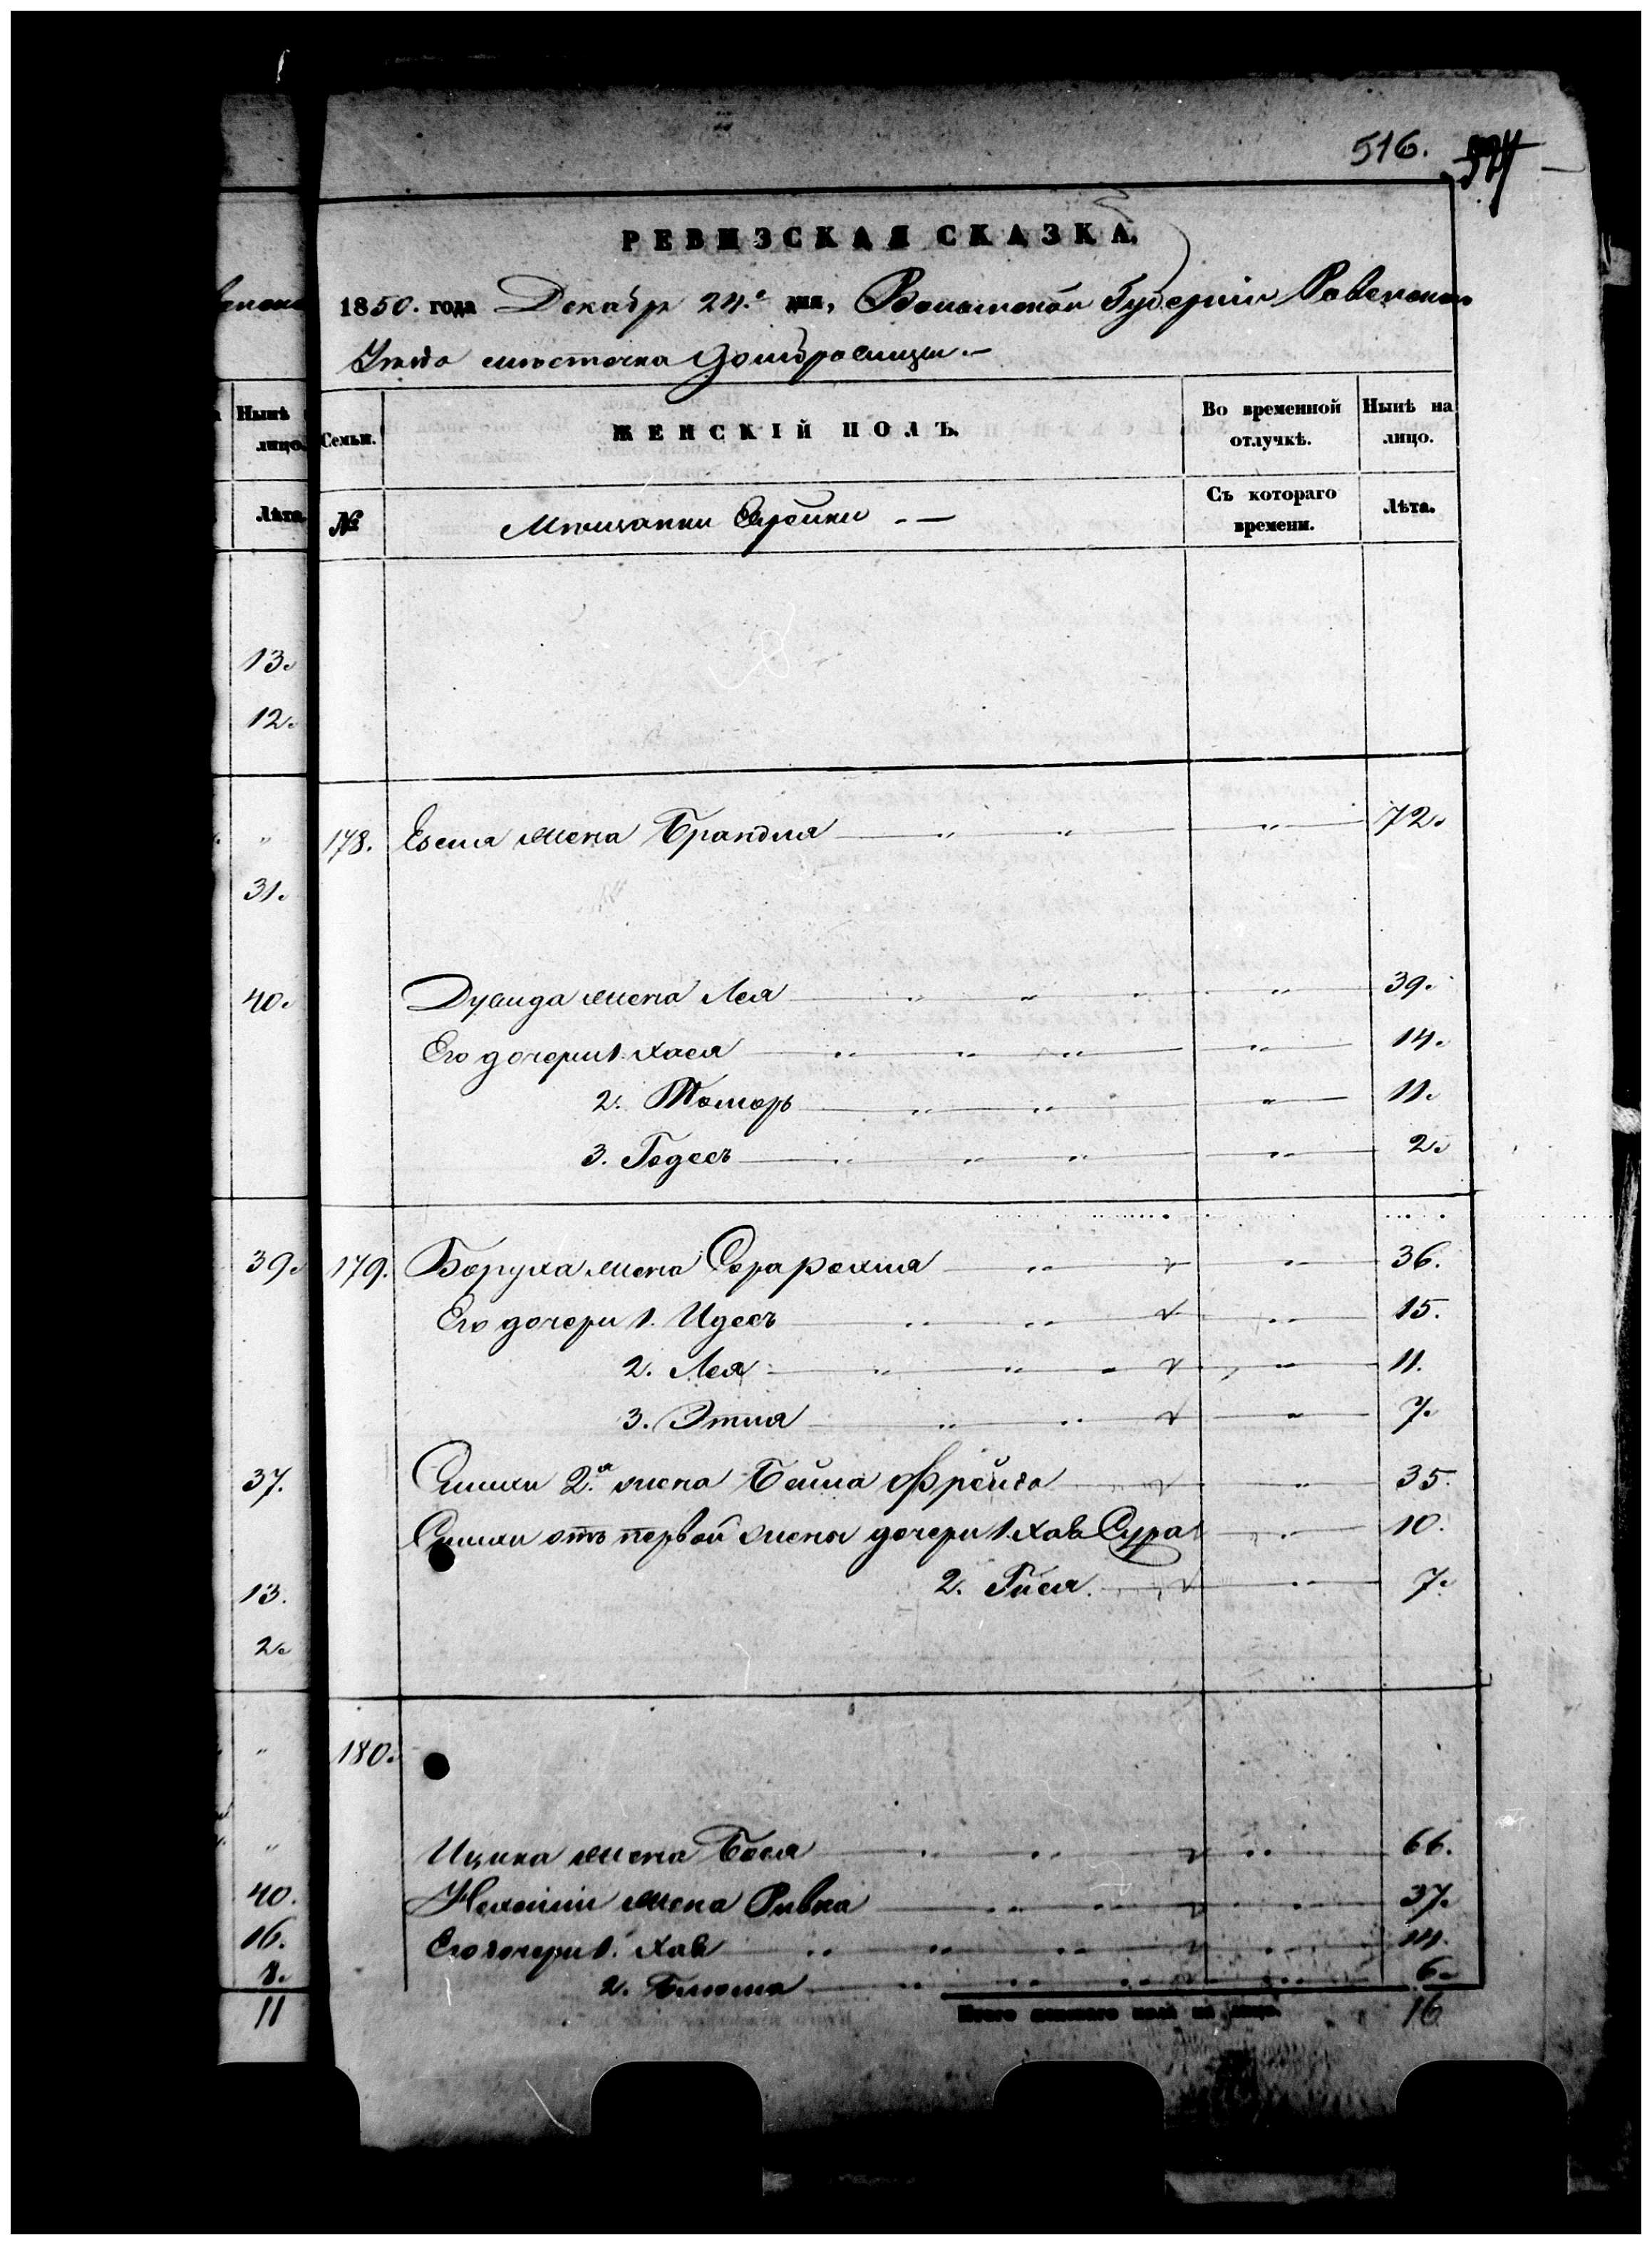 516. 524
РЕВИЗСКАЯ СКАЗКА,
1850. года Декабр 24.го дня, Волынской Губерніи Ровенскаго
Уезда местечка Домбровицы.—
Семьи. ЖЕНСКІЙ ПОЛЪ. Во временной отлучкѣ. Нынѣ на лицо.
№ Мещанки Еврейки Съ котораго времени. Лѣта.
Нынѣ
лицо.
Лѣта.
13.
12.
178. жена Брандля 72.
31.
40. Дувида жена Лея 39.
Его дочери 1. Хася 14.
2. Томоръ 11.
3. Годесъ 2.
39. 179. Боруха жена Сора Рохля 36.
Его дочери 1. Идесъ 15.
2. Лея 11.
3. Этля 7.
37. Симхи 2.я жена Бейла Фрейда 35.
Симхи отъ первой жены дочери 1. Хава Сура 10.
13. 2. Гися 7.
2.
180.
Ицка жена Бася 66.
40. Нехеміи жена Ривка 37.
16. Его дочери 1. Хава 14.
8. 2. Блюма 6.
11 Итого женскаго пола на лицо. 16